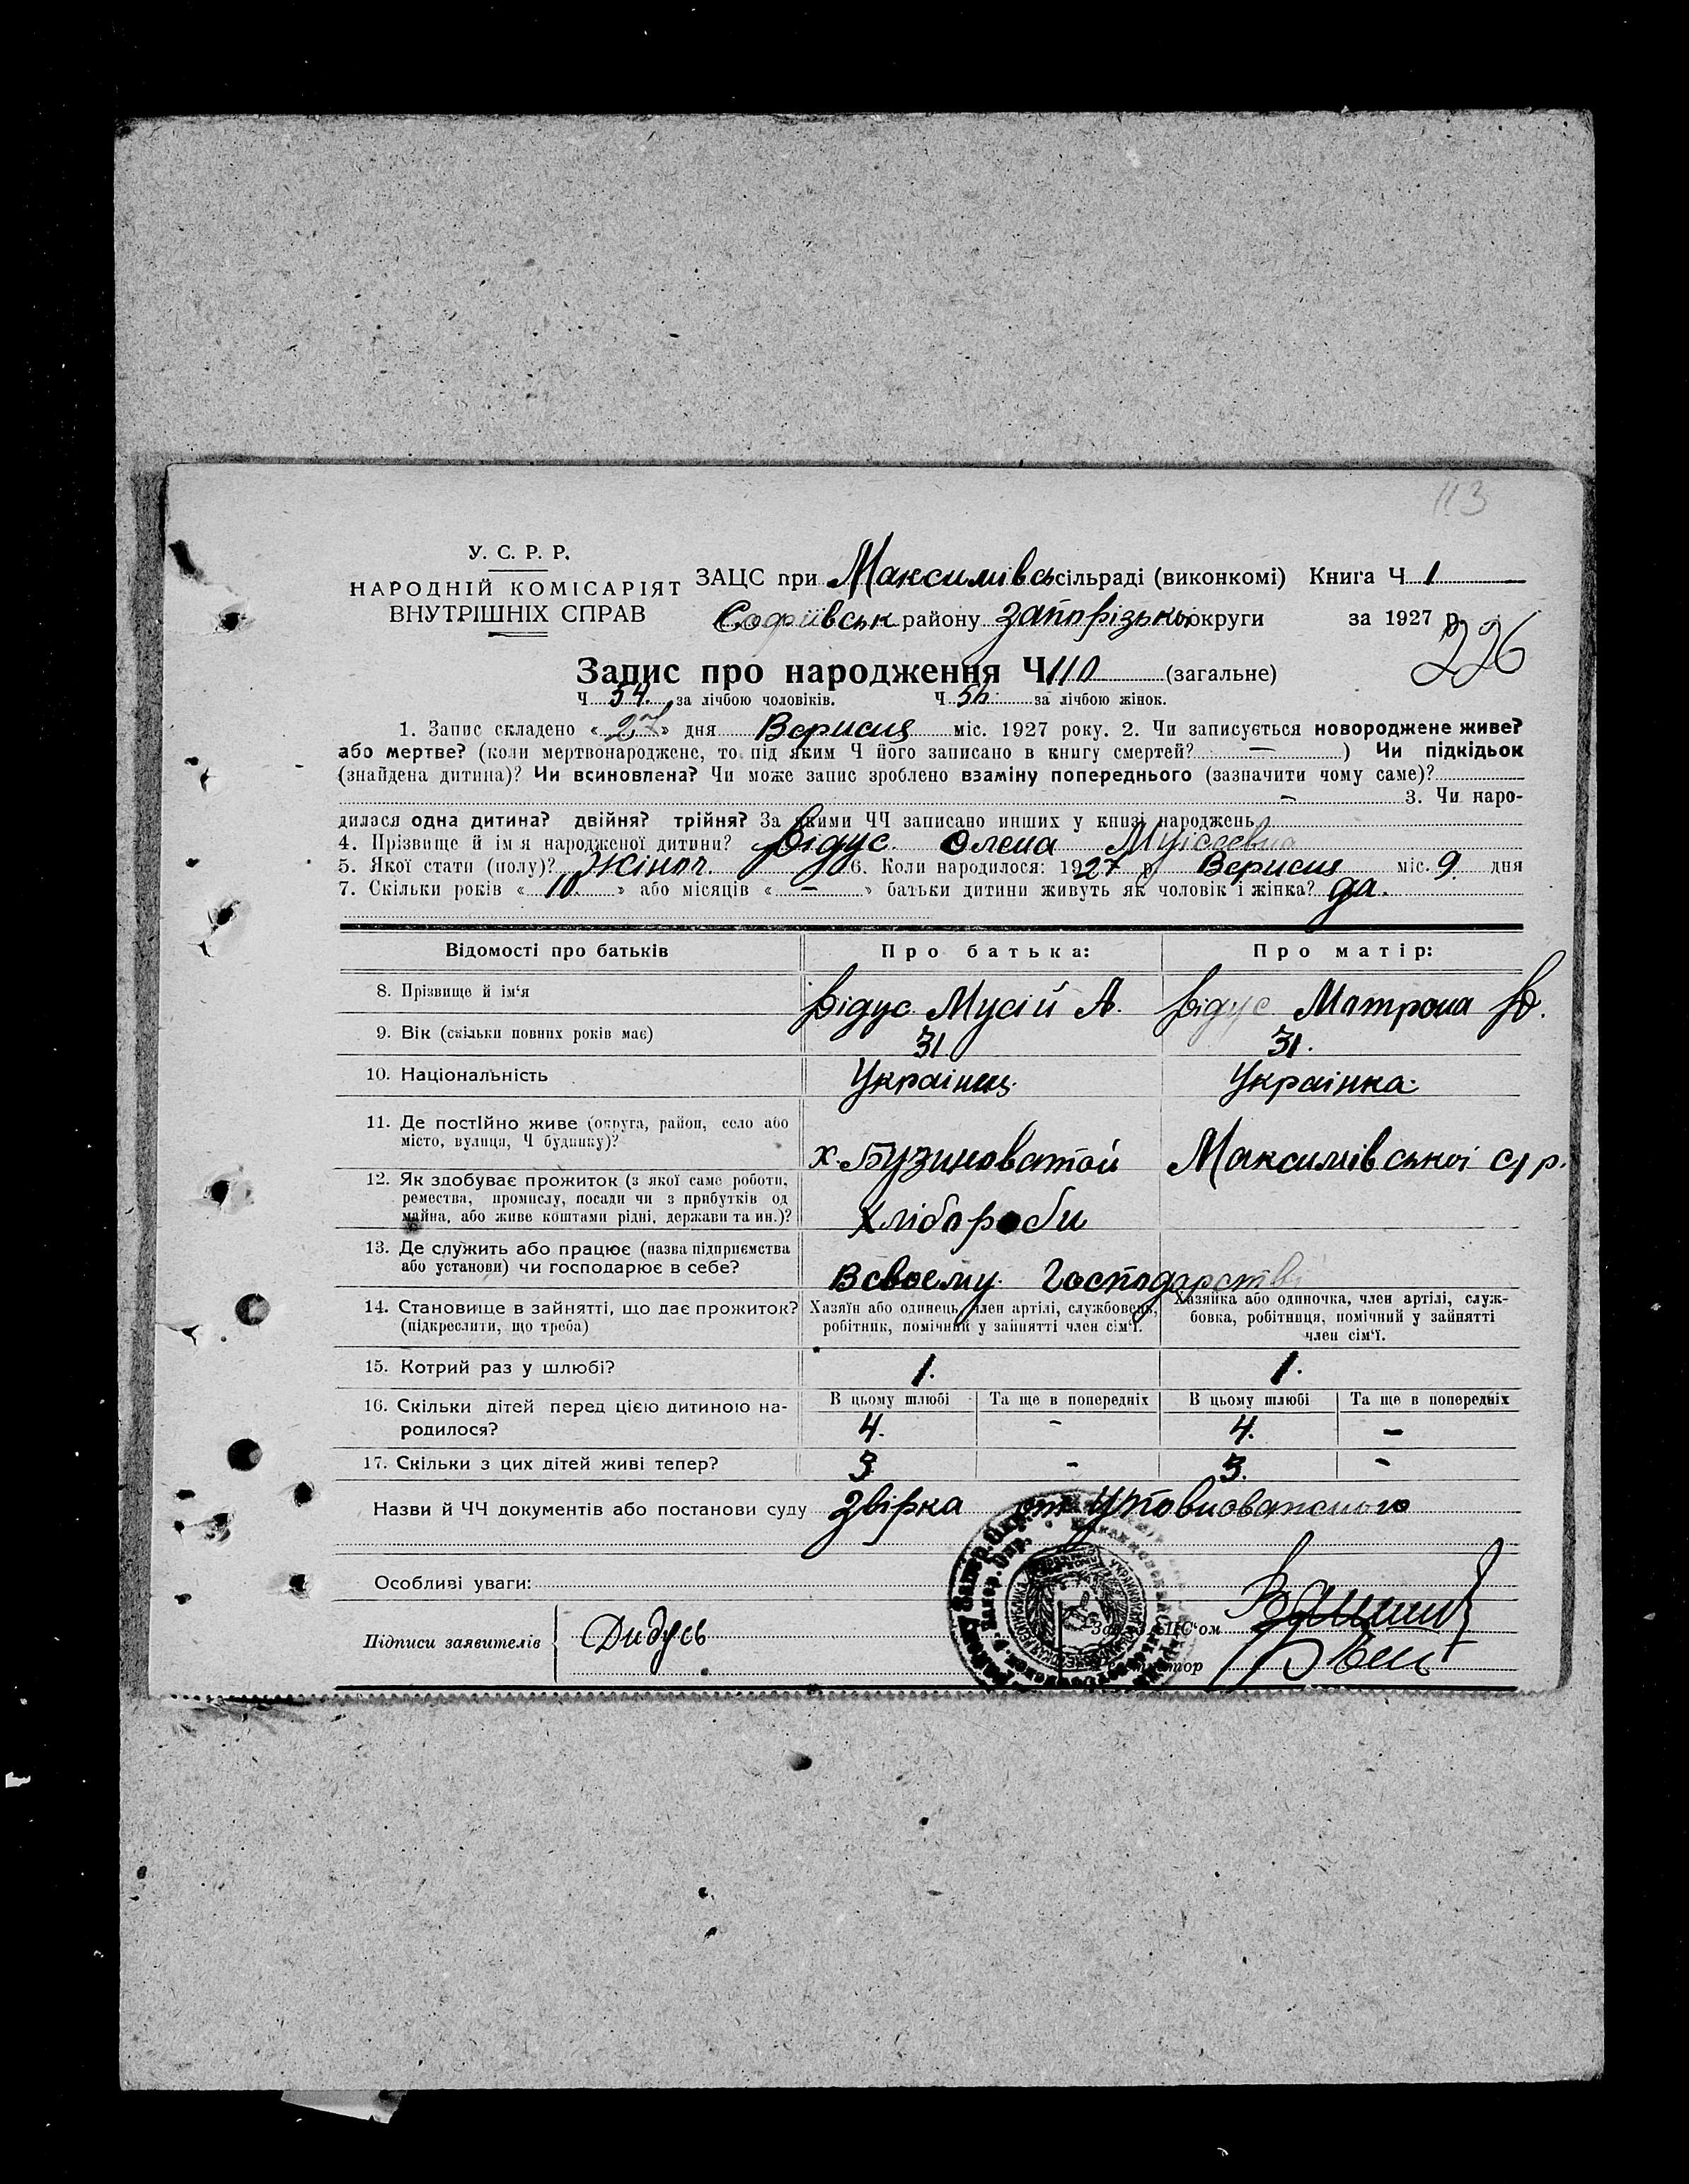 113
У. С. Р. Р.
НАРОДНІЙ КОМІСАРІЯТ
ВНУТРІШНІХ СПРАВ
ЗАЦС при Максимівсь сільраді (виконкомі) Книга Ч 1
Софіївськ району Запорізької округи за 1927 р.
226
Запис про народження Ч 110 (загальне)
Ч 54. за лічбою чоловіків. Ч 56. за лічбою жінок.
1. Запис складено «27» дня Версиця міс. 1927 року. 2. Чи записується новороджене живе?
або мертве? (коли мертвонароджене, то під яким Ч його записано в книгу смертей? — ) Чи підкідьок
(знайдена дитина)? Чи всиновлена? Чи може запис зроблено взаміну попереднього (зазначити чому саме)?
– 3. Чи наро-
дилася одна дитина? двійня? трійня? За якими ЧЧ записано инших у книзі народжень
4. Прізвище й ім'я народженої дитини? Дідус Олена Муісеевна
5. Якої стати (полу)? Жіноч. 6. Коли народилося: 1927 р. Версиця міс. 9. дня
7. Скільки років « 10. » або місяців « – » батьки дитини живуть як чоловік і жінка? да.
Відомості про батьків Про батька: Про матір:
8. Прізвище й ім'я Дідус Мусій А. Дідус Матрона
9. Вік (скільки повних років має) 31 31.
10. Національність Украінец. Украінка.
11. Де постійно живе (округа, район, село або
місто, вулиця, Ч будинку)? х. Бузиноватой Максимівської с/р.
12. Як здобуває прожиток (з якої саме роботи,
ремества, промислу, посади чи з прибутків од
майна, або живе коштами рідні, держави та ин.)? Хлібороби
13. Де служить або працює (назва підприємства
або установи) чи господарює в себе? В своему Господарстві
14. Становище в зайнятті, що дає прожиток? (підкреслити, що треба)
Хазяїн або одинець, член артілі, службовець,
робітник, помічний у зайнятті член сім'ї.
Хазяйка або одиночка, член артілі, служ-
бовка, робітниця, помічний у зайнятті
член сім'ї.
15. Котрий раз у шлюбі? 1. 1.
В цьому шлюбі Та ще в попередніх В цьому шлюбі Та ще в попередніх
16. Скільки дітей перед цією дитиною на-
родилося? 4. - 4. –
17. Скільки з цих дітей живі тепер? 3 - 3. -
Назви й ЧЧ документів або постанови суду Звірка от
Особливі уваги:
Підписи заявителів Дидусь
Зав. ЗАЦС'ом
Реєстратор